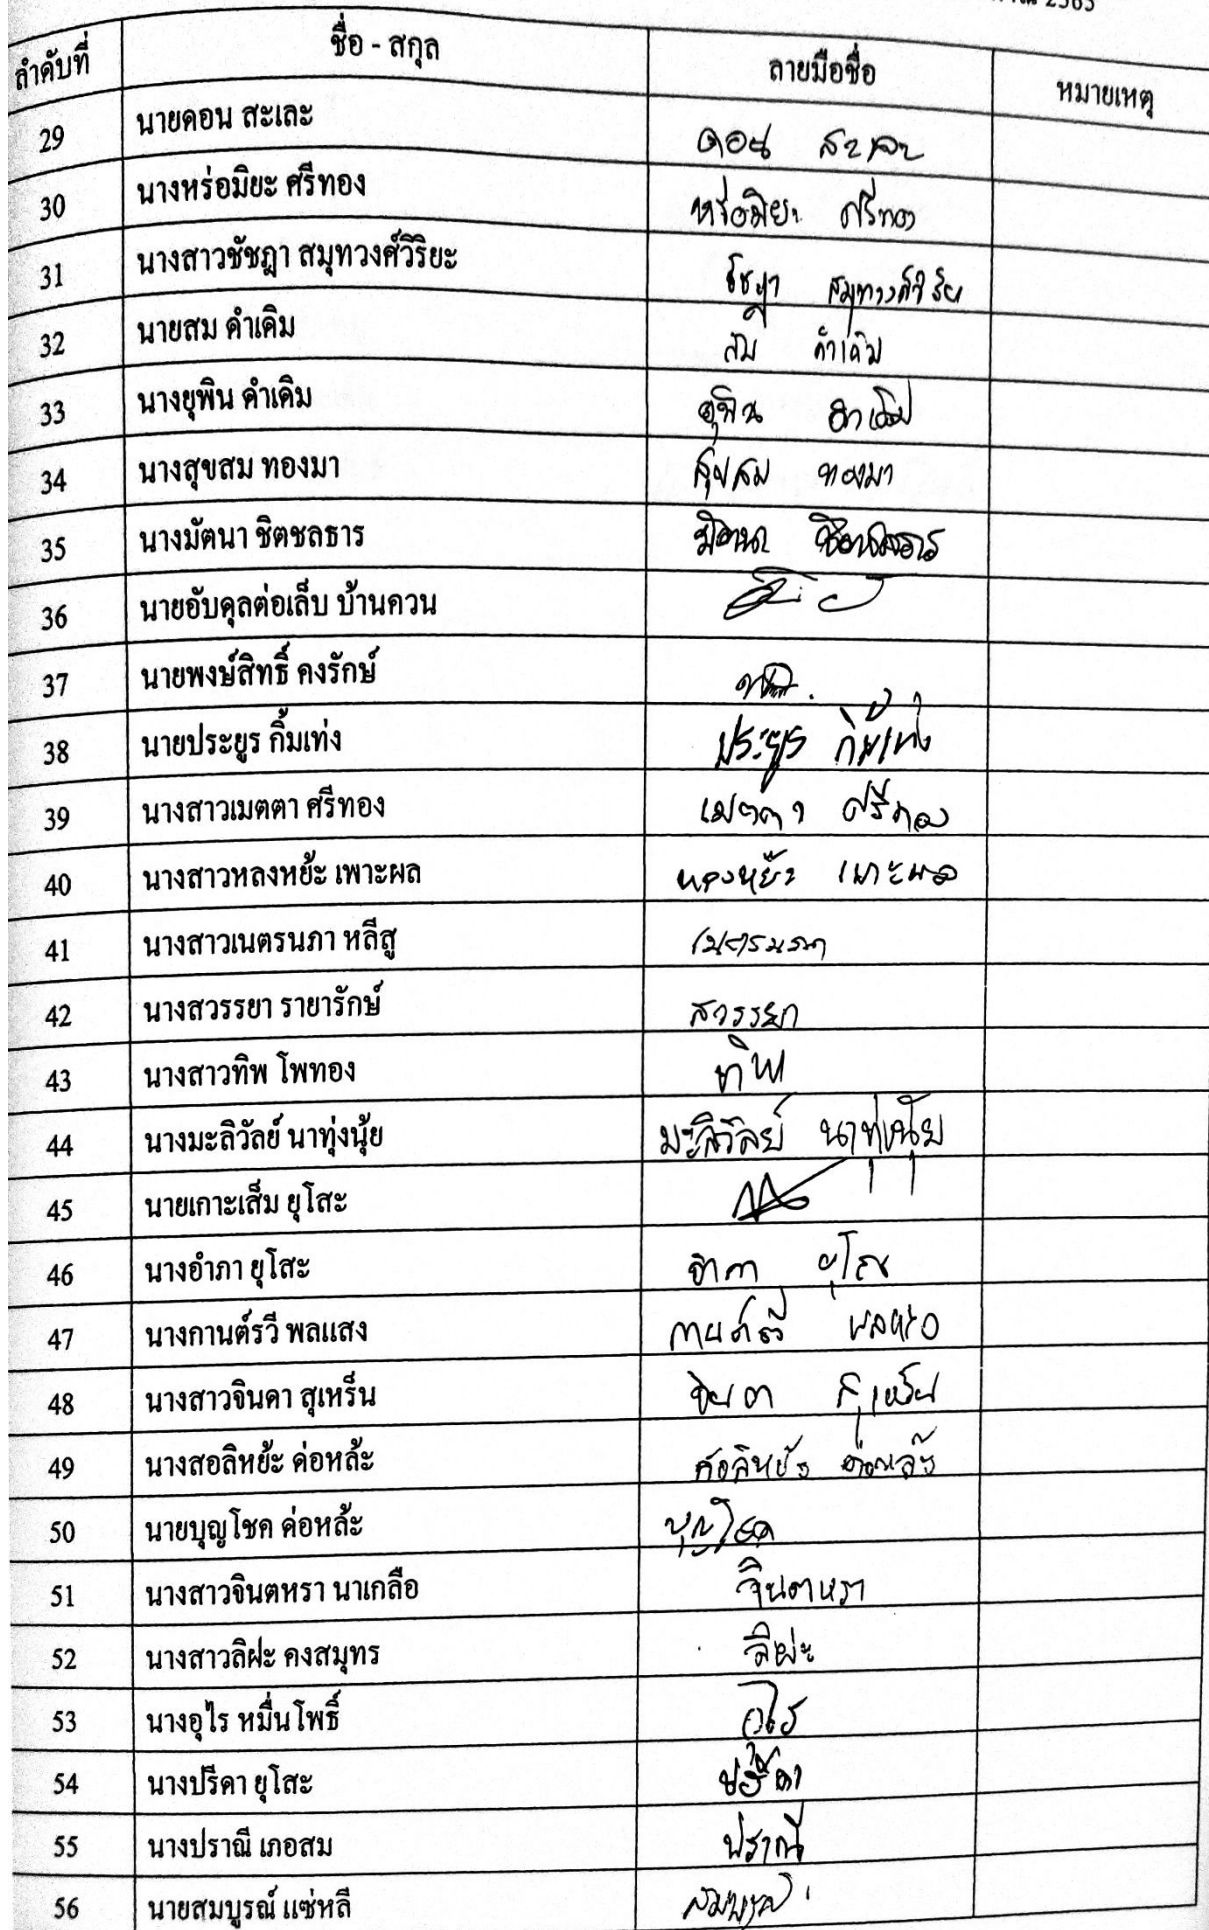 2565
ลำดับที่ ชื่อ - สกุล ลายมือชื่อ หมายเหตุ
29 นายดอน สะเละ ดอน สะเละ
30 นางหร่อมิยะ ศรีทอง หร่อมิยะ ศรีทอง
31 นางสาวชัชฎา สมุทวงศ์วิริยะ
32 นายสม คำเดิม สม คำเดิม
33 นางยุพิน คำเดิม ยุพิน
34 นางสุขสม ทองมา สุขสม ทองมา
35 นางมัตนา ชิตชลธาร
36 นายอับดุลต่อเล็บ บ้านควน
37 นายพงษ์สิทธิ์ คงรักษ์
38 นายประยูร กิ้มเท่ง ประยูร กิ้มเท่ง
39 นางสาวเมตตา ศรีทอง เมตตา ศรีทอง
40 นางสาวหลงหย้ะ เพาะผล หลงหย้ะ เพาะผล
41 นางสาวเนตรนภา หลีสู เนตรนภา
42 นางสวรรยา รายารักษ์ สวรรยา
43 นางสาวทิพ โพทอง ทิพ
44 นางมะลิวัลย์ นาทุ่งนุ้ย มะลิวัลย์ นาทุ่งนุ้ย
45 นายเกาะเส็ม ยุโสะ
46 นางอำภา ยุโสะ อำภา
47 นางกานต์รวี พลแสง
48 นางสาวจินดา สุเหร็น จินดา สุเหร็น
49 นางสอลิหย้ะ ค่อหล้ะ สอลิหย้ะ ค่อหล้ะ
50 นายบุญโชค ค่อหล้ะ บุญโชค
51 นางสาวจินตหรา นาเกลือ จินตหรา
52 นางสาวลิฝะ คงสมุทร ลิฝะ
53 นางอุไร หมื่นโพธิ์ อุไร
54 นางปรีดา ยุโสะ ปรีดา
55 นางปราณี เภอสม ปราณี
56 นายสมบูรณ์ แซ่หลี สมบูรณ์